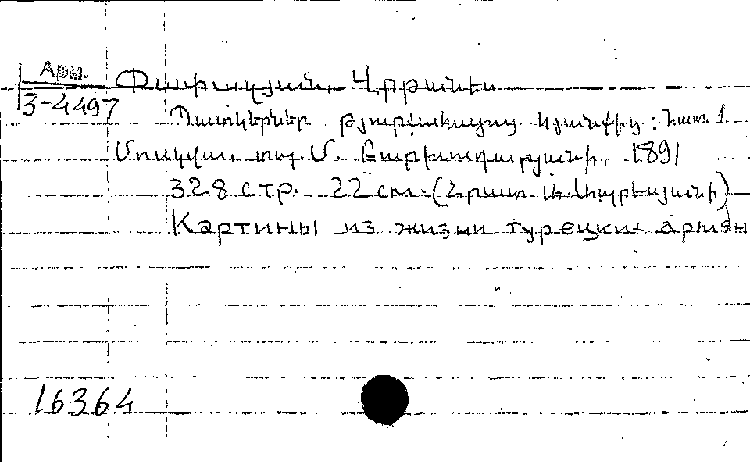 Арм.
3-4497
Փափազյան, Վրթանես
Պատկերներ թյուրքահայոց կյանքից: Հատ. 1
Մոսկվա, տպ. Մ. Բարխուդարյանի, 1891
328 стр. 22 см. (Հրատ.
Картины из жизни турецких армян
16364